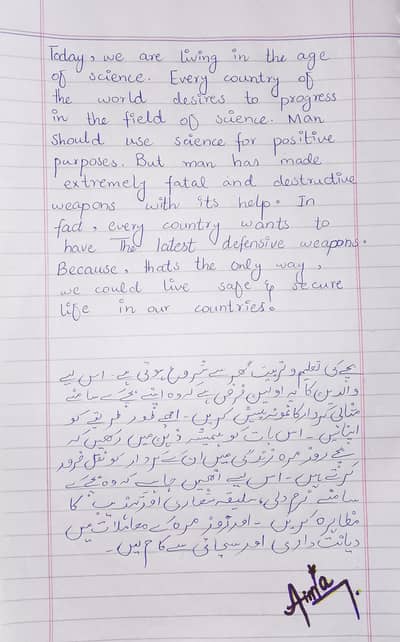 Today, we are living in the age
of science. Every country of
the world desires to progress
in the field of science. Man
should use science for positive
purposes. But man has made
extremely fatal and destructive
weapons with its help. In
fact, every country wants to
have The latest defensive weapons.
Because, thats the only way,
we could live safe & secure
life in our countries.
بچے کی تعلیم و تربیت گھر سے شروع ہوتی ہے۔ اس لیے
والدین کا یہ اولین فرض ہے کہ وہ اپنے بچے کے سامنے
مثالی کردار کا نمونہ پیش کریں۔ اچھے طور طریقے کو
اپنائیں۔ اس بات کو ہمیشہ ذہن میں رکھیں کہ
بچے روز مرہ زندگی میں ان کے کردار کو نقل ضرور
کرتے ہیں۔ اس لیے انھیں چاہیے کہ وہ بچے کے
سامنے نرم دلی، سلیقہ شعاری اور تہذیب کا
مظاہرہ کریں۔ اور روز مرہ کے معاملات میں
دیانت داری اور سچائی سے کام لیں۔
Aima